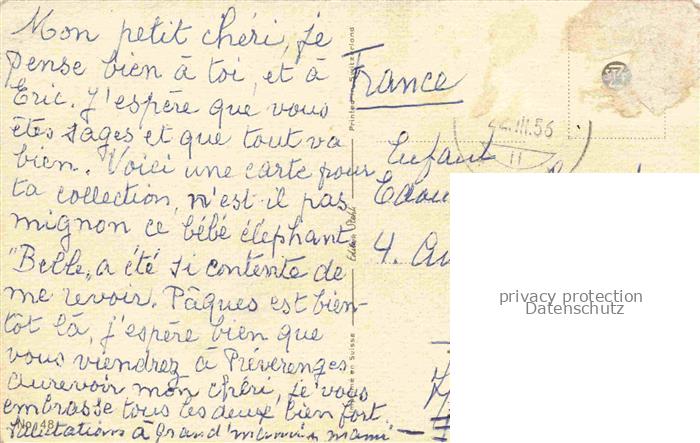 Mon petit chéri, je
pense bien à toi, et à
Eric. J'espère que vous
êtes sages et que tout va
bien. Voici une carte pour
ta collection, n'est-il pas
mignon ce bébé éléphant
"Belle" a été si contente de
me revoir. Pâques est bien-
tôt là, j'espère bien que
vous viendrez à Préverenges
aurevoir mon chéri, je vous
embrasse tous les deux bien fort.
salutations à Grand'maman mami
No. 48
Printed Switzerland
Edition
en Suisse
France
III.56
11
Enfant
4. Av
privacy protection
Datenschutz